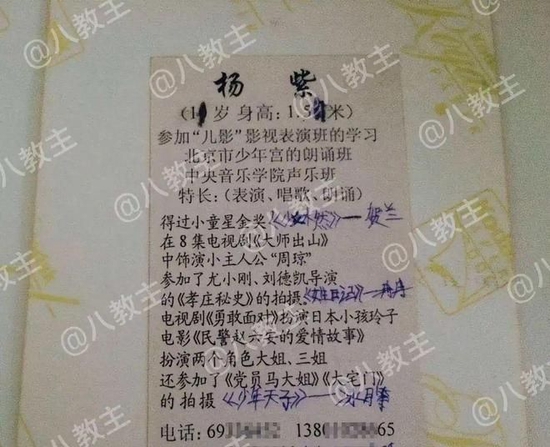 @八教主
杨紫
(1 岁 身高:1.5 米)
参加“儿影”影视表演班的学习
北京市少年宫的朗诵班
中央音乐学院声乐班
特长:(表演、唱歌、朗诵)
得过小童星金奖 贺兰
在8集电视剧《大师出山》
中饰演小主人公“周琼”
参加了尤小刚、刘德凯导演
的《孝庄秘史》的拍摄
电视剧《勇敢面对》扮演日本小孩玲子
电影《民警赵六安的爱情故事》
扮演两个角色大姐、三姐
还参加了《党员马大姐》《大宅门》
的拍摄《少年天子》——
电话:69 52 138 65